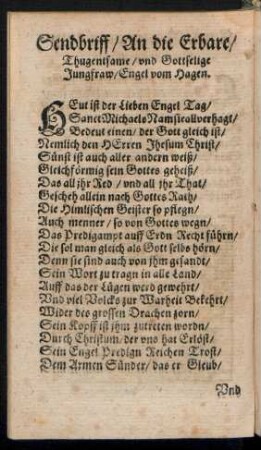 Sendbriff/ An die Erbare/
Thugentsame/ vnd Gottselige
Jungfraw/ Engel vom Hagen.
HEut ist der Lieben Engel Tag/
Sanct Michaels Nam
Bedeut einen/ der Gott gleich ist/
Nemlich den HErren Jhesum Christ/
Sünst ist auch aller andern weiß/
Gleichförmig sein Gottes geheiß/
Das all jhr Red/ vnd all jhr That/
Gescheh allein nach Gottes Rath/
Die Himlischen Geister so pflegn/
Auch menner/ so von Gottes wegn/
Das Predigampt auff Erdn Recht führn/
Die sol man gleich als Gott selbs hörn/
Denn sie sind auch von jhm gesandt/
Sein Wort zu tragn in alle Land/
Auff das der Lügen werd gewehrt/
Vnd viel Volcks zur Warheit Bekehrt/
Wider des grossen Drachen zorn/
Sein Kopff ist jhm zutreten wordn/
Durch Christum/ der vns hat Erlöst/
Sein Engel Predign Reichen Trost/
Dem Armen Sünder/ das er Gleub/
Vnd